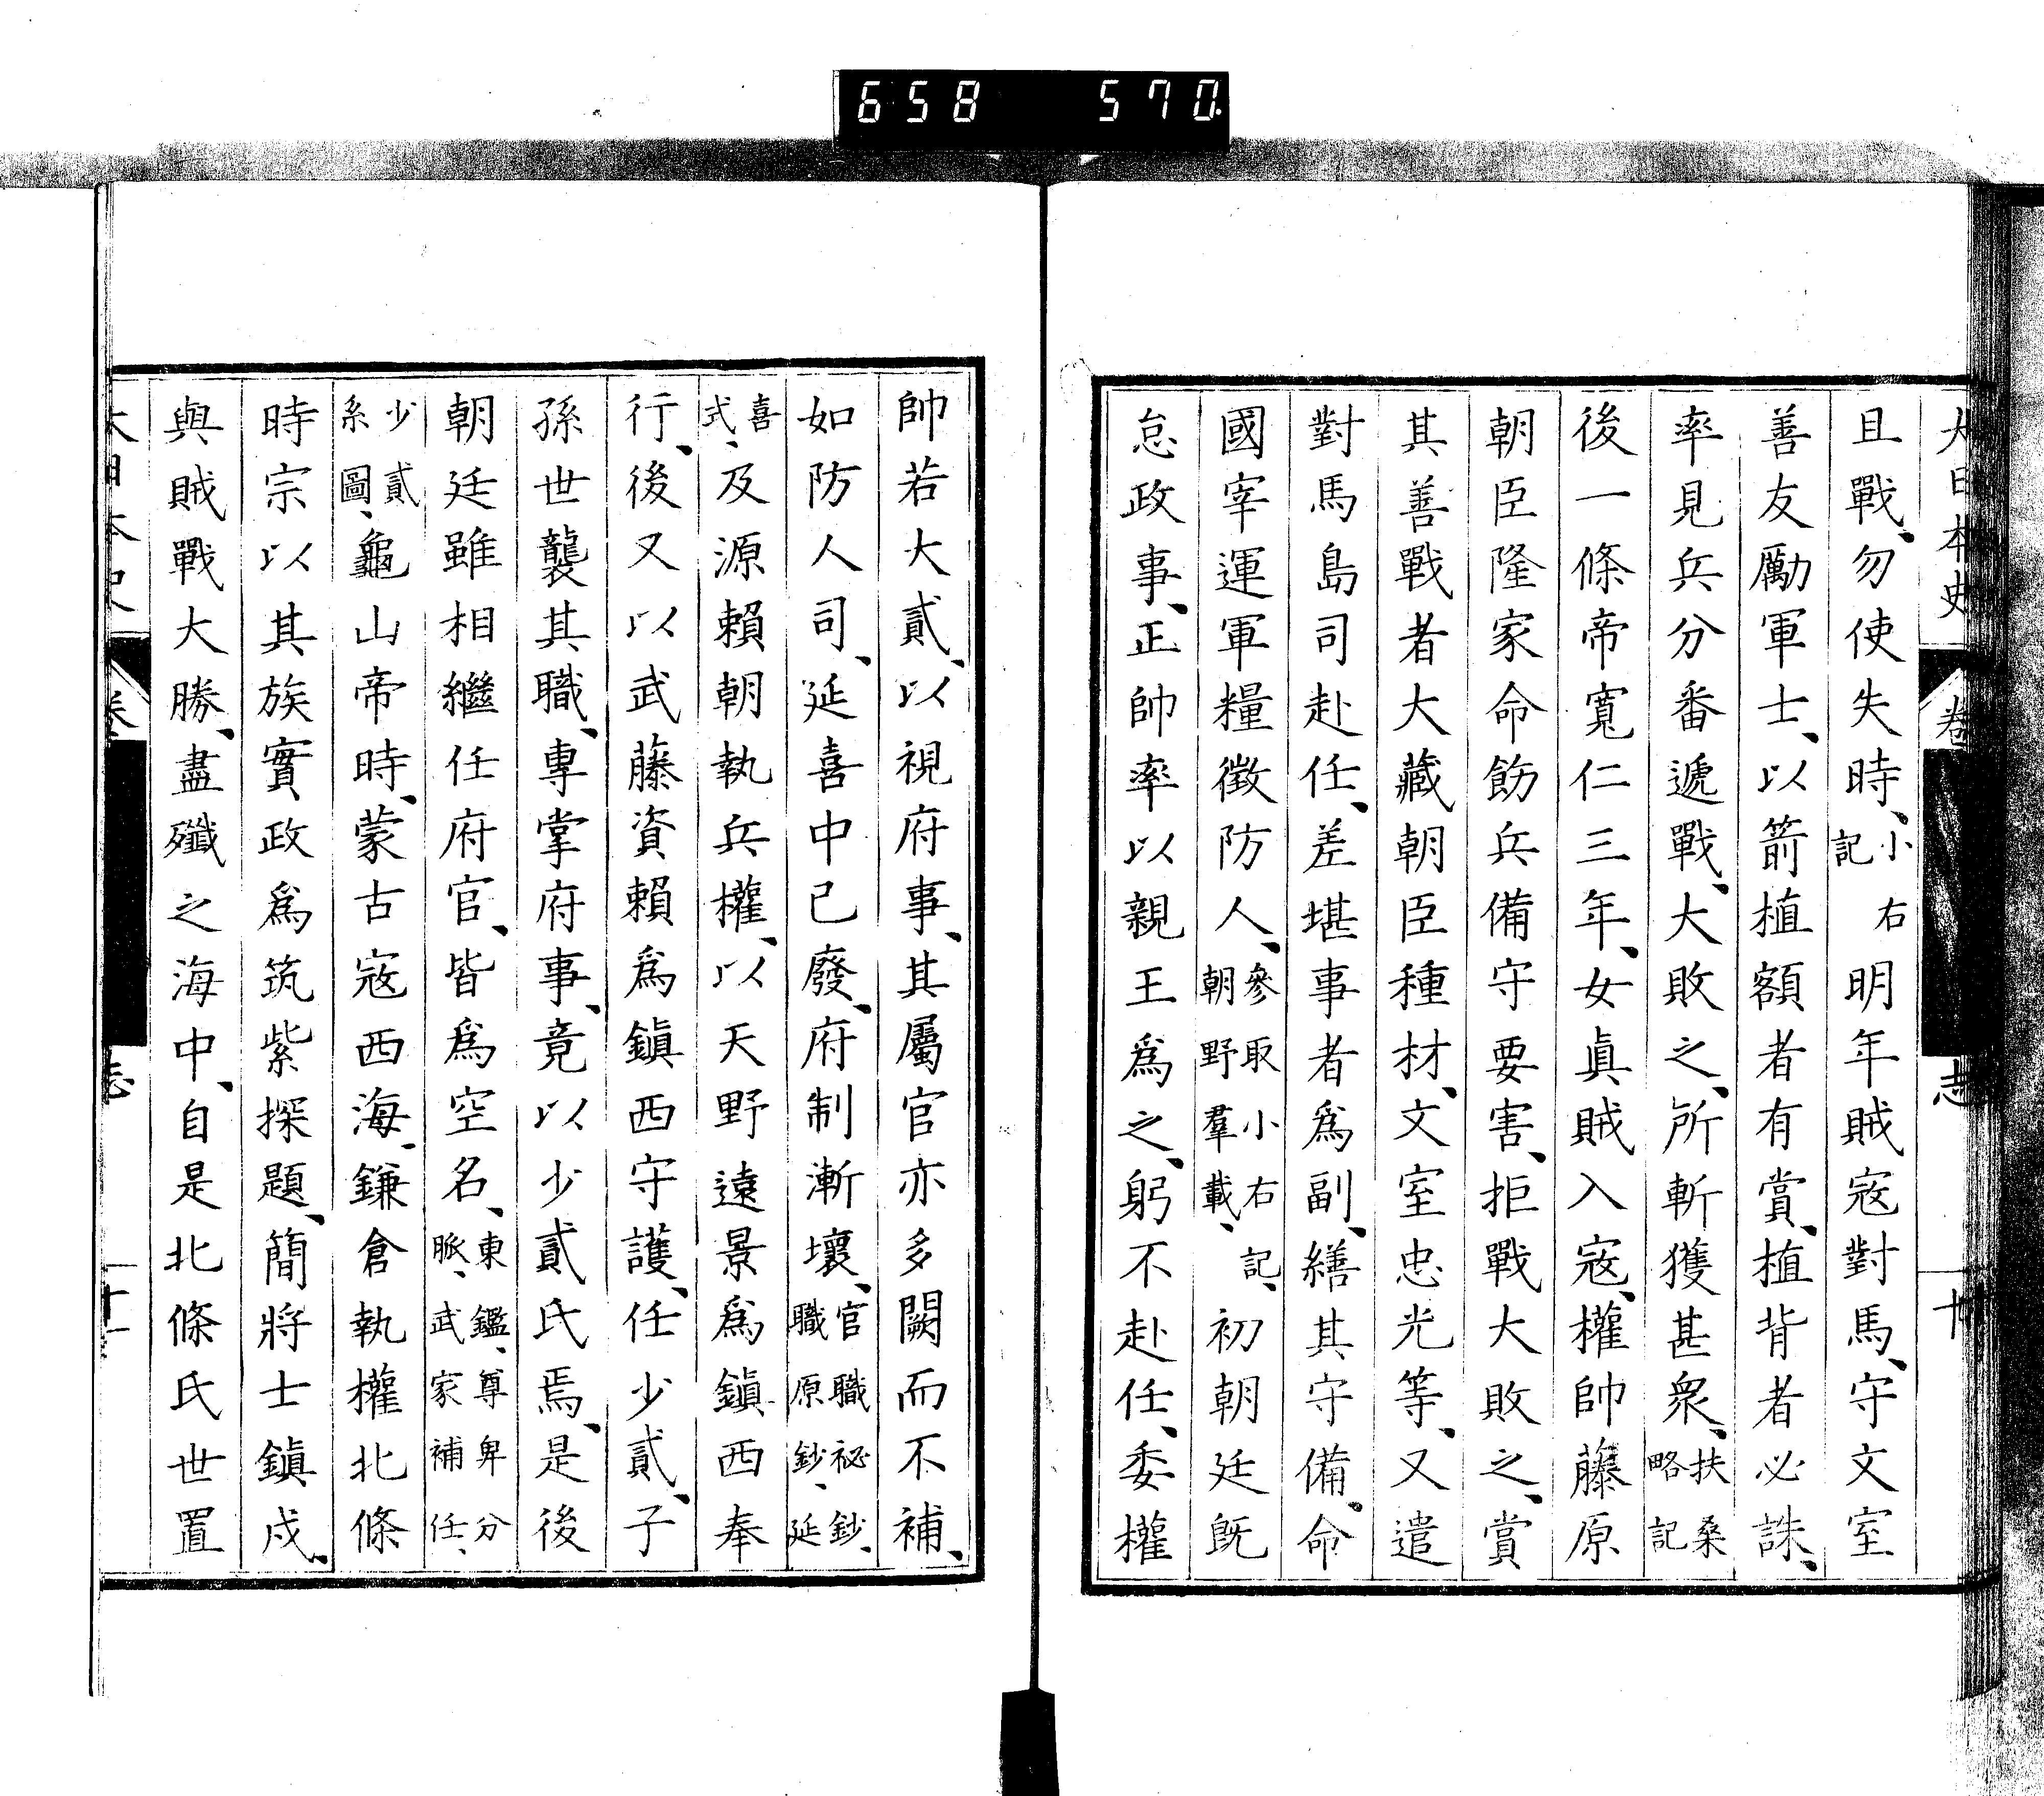 658 570
大日本史 卷 志 十
且戰、勿使失時、小右記明年賊寇對馬、守文室
善友勵軍士、以箭植額者有賞、植背者必誅、
率見兵分番遞戰、大敗之、所斬獲甚衆、扶桑略記
後一條帝寬仁三年、女眞賊入寇、權帥藤原
朝臣隆家命飭兵備守要害、拒戰大敗之、賞
其善戰者大藏朝臣種材、文室忠光等、又遣
對馬島司赴任、差堪事者爲副、繕其守備、命
國宰運軍糧徵防人、參取小右記、朝野羣載、初朝廷既
怠政事、正帥率以親王爲之、躬不赴任、委權
帥若大貳、以視府事、其屬官亦多闕而不補、
如防人司、延喜中已廢、府制漸壞、官職祕鈔、職原鈔、延
喜式、及源賴朝執兵權、以天野遠景爲鎭西奉
行、後又以武藤資賴爲鎭西守護、任少貳、子
孫世襲其職、專掌府事、竟以少貳氏焉、是後
朝廷雖相繼任府官、皆爲空名、東鑑、尊卑分脈、武家補任、
少貳系圖、龜山帝時、蒙古寇西海、鎌倉執權北條
時宗以其族實政爲筑紫探題、簡將士鎭戍、
與賊戰大勝、盡殲之海中、自是北條氏世置
大日本史 卷 志 十一